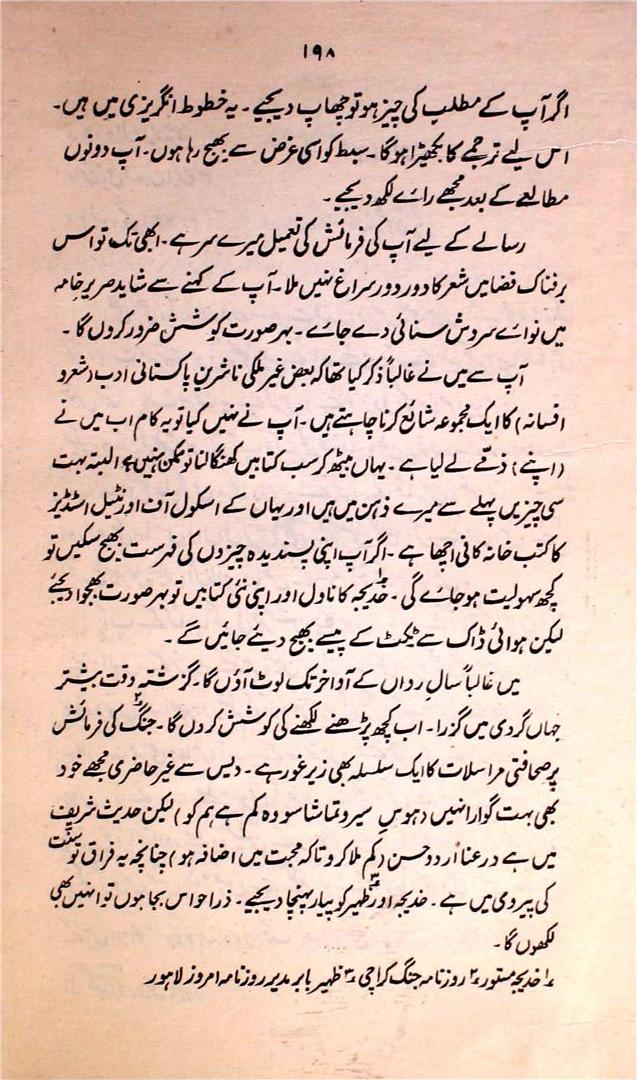 ۱۹۸
اگر آپ کے مطلب کی چیز ہو تو چھاپ دیجیے۔ یہ خطوط انگریزی میں ہیں۔
اس لیے ترجمے کا بکھیڑا ہوگا۔ سبط کو اسی غرض سے بھیج رہا ہوں۔ آپ دونوں
مطالعے کے بعد مجھے رائے لکھ دیجیے۔
رسالے کے لیے آپ کی فرمائش کی تعمیل میرے سر ہے۔ ابھی تک تو اس
برفناک فضا میں شعر کا دور دور سراغ نہیں ملا۔ آپ کے کہنے سے شاید صریرِ خامہ
میں نوائے سروش سنائی دے جائے۔ بہرصورت کوشش ضرور کروں گا۔
آپ سے میں نے غالباً ذکر کیا تھا کہ بعض غیر ملکی ناشرین پاکستانی ادب (شعر و
افسانہ) کا ایک مجموعہ شائع کرنا چاہتے ہیں۔ آپ نے نہیں کیا تو یہ کام اب میں نے
(اپنے) ذمّے لے لیا ہے۔ یہاں بیٹھ کر سب کتابیں کھنگالنا تو ممکن نہیں ہے البتہ بہت
سی چیزیں پہلے سے میرے ذہن میں ہیں اور یہاں کے اسکول آف اورنٹیل اسٹڈیز
کا کتب خانہ کافی اچھا ہے۔ اگر آپ اپنی پسندیدہ چیزوں کی فہرست بھیج سکیں تو
کچھ سہولیت ہوجائے گی۔ خدیجہ۱ کا ناول اور اپنی نئی کتابیں تو بہرصورت بھجوا دیجئے
لیکن ہوائی ڈاک سے ٹکٹ کے پیسے بھیج دیئے جائیں گے۔
میں غالباً سالِ رواں کے آواخر تک لوٹ آؤں گا۔ گزشتہ وقت بیشتر
جہاں گردی میں گزرا۔ اب کچھ پڑھنے لکھنے کی کوشش کروں گا۔ جنگ۲ کی فرمائش
پر صحافتی مراسلات کا ایک سلسلہ بھی زیر غور ہے۔ دیس سے غیر حاضری مجھے خود
بھی بہت گوارا نہیں (ہوسِ سیر و تماشا سو وہ کم ہے ہم کو) لیکن حدیث شریف
میں ہے درعناً اردد حسن (کم ملا کرو تاکہ محبت میں اضافہ ہو) چنانچہ یہ فراق تو سنّت
کی پیروی میں ہے۔ خدیجہ اور ظہیر۳ کو پیار پہنچا دیجیے۔ ذرا حواس بجا ہوں تو انہیں بھی
لکھوں گا۔
۱؎ خدیجہ مستور ۲؎ روزنامہ جنگ کراچی ۳؎ ظہیر بابر مدیر روزنامہ امروز لاہور